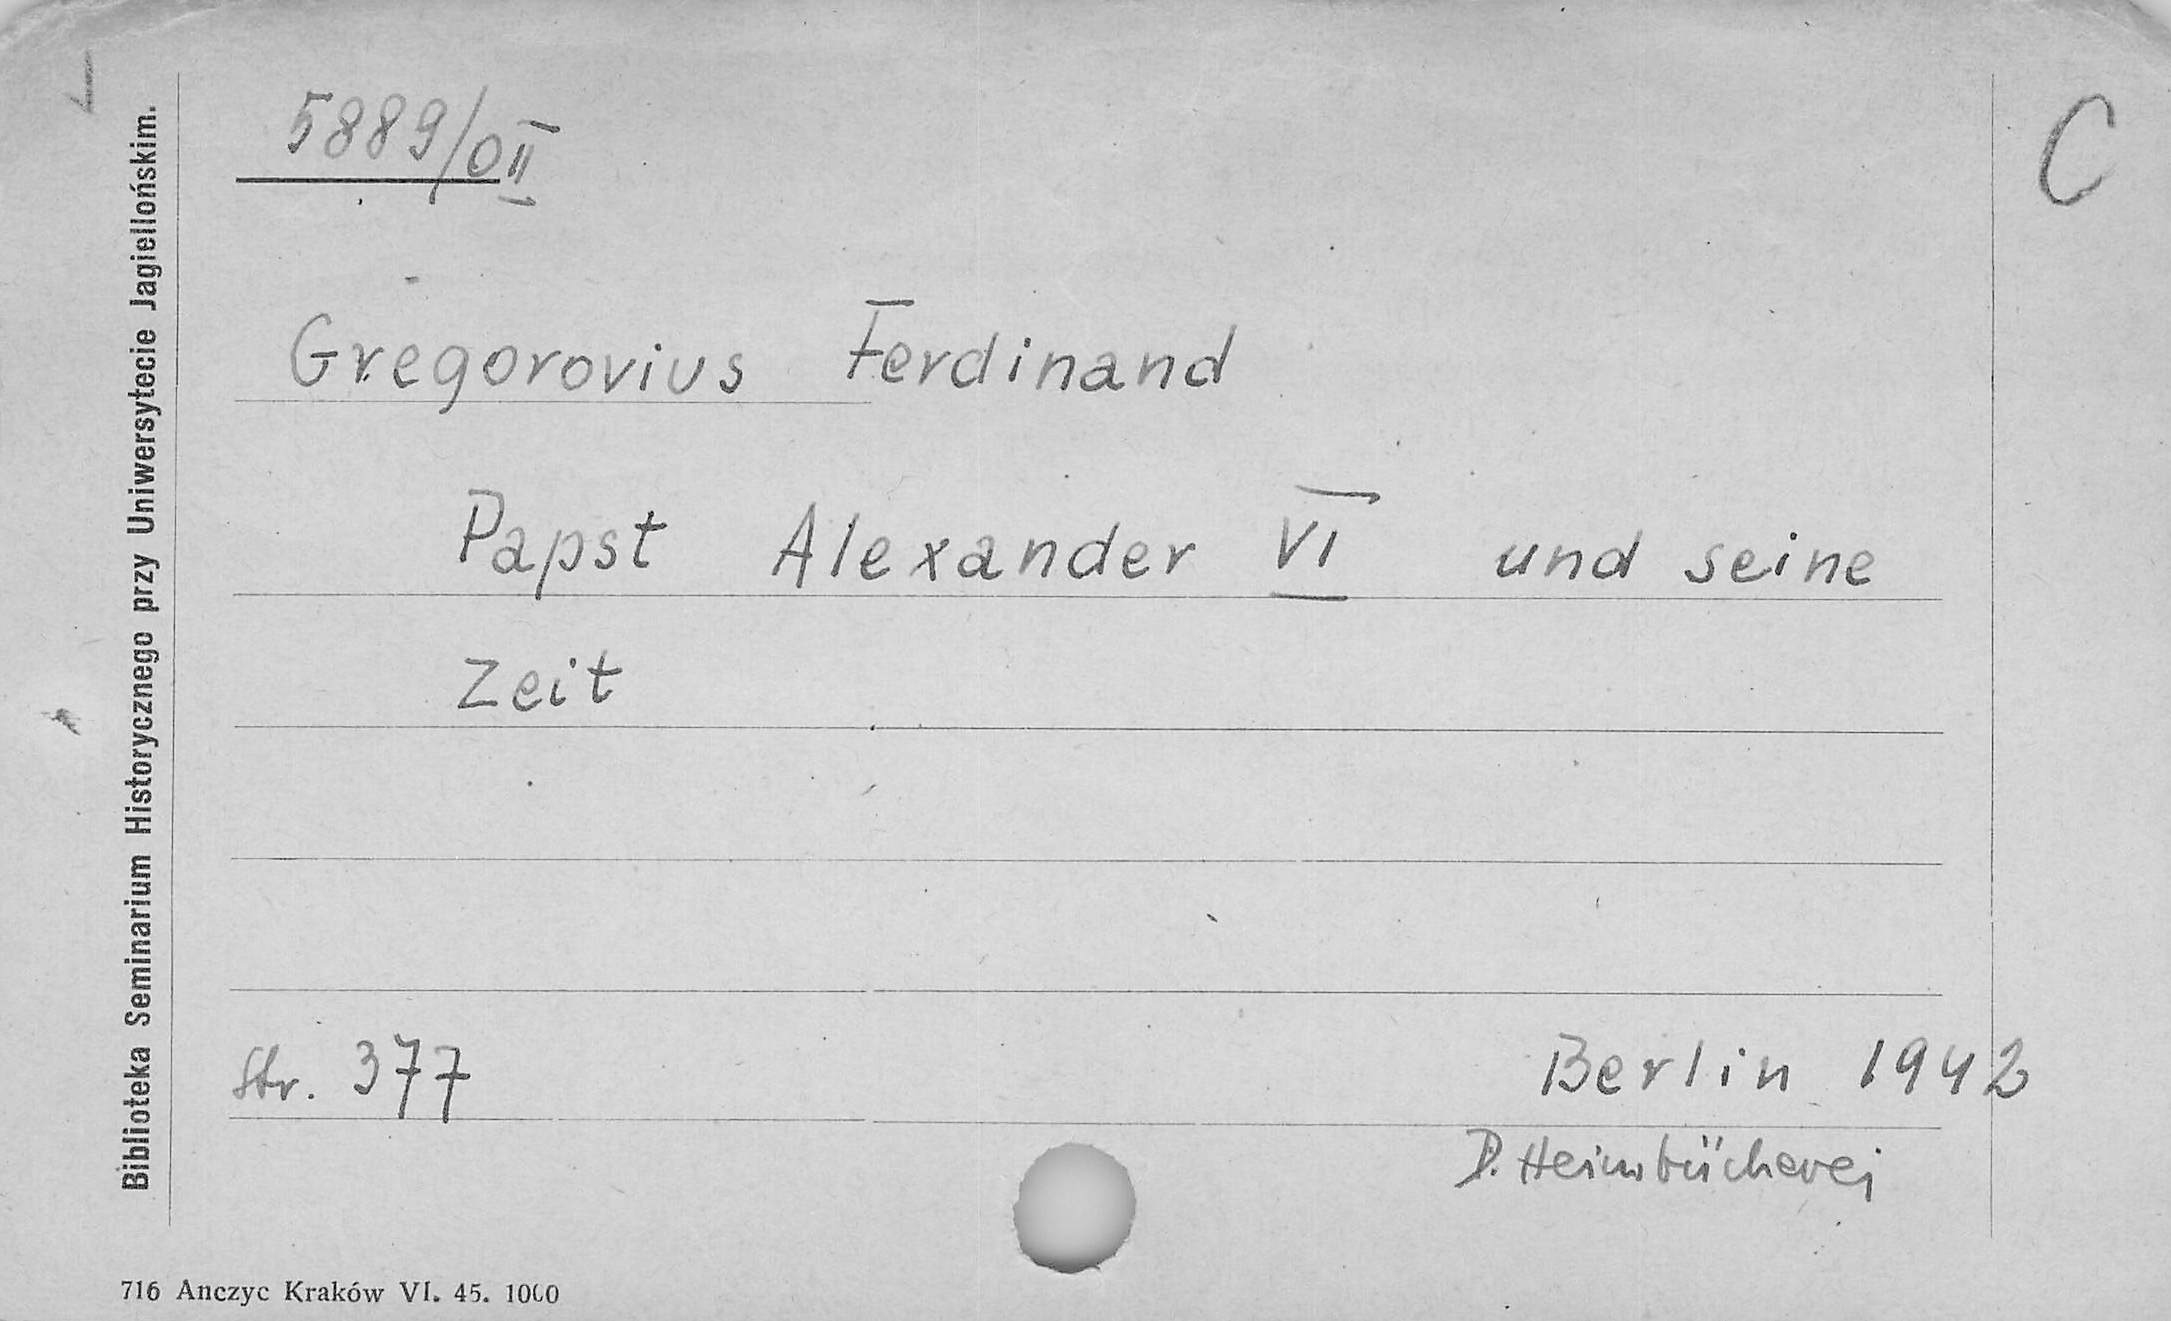 5889/0 II
C
Gregorovius Ferdinand
Papst Alexander VI und seine
Zeit
Str. 377
Berlin 1942
D. Heimbücherei
Biblioteka Seminarium Historycznego przy Uniwersytecie Jagiellońskim.
716 Anczyc Kraków VI. 45. 1000